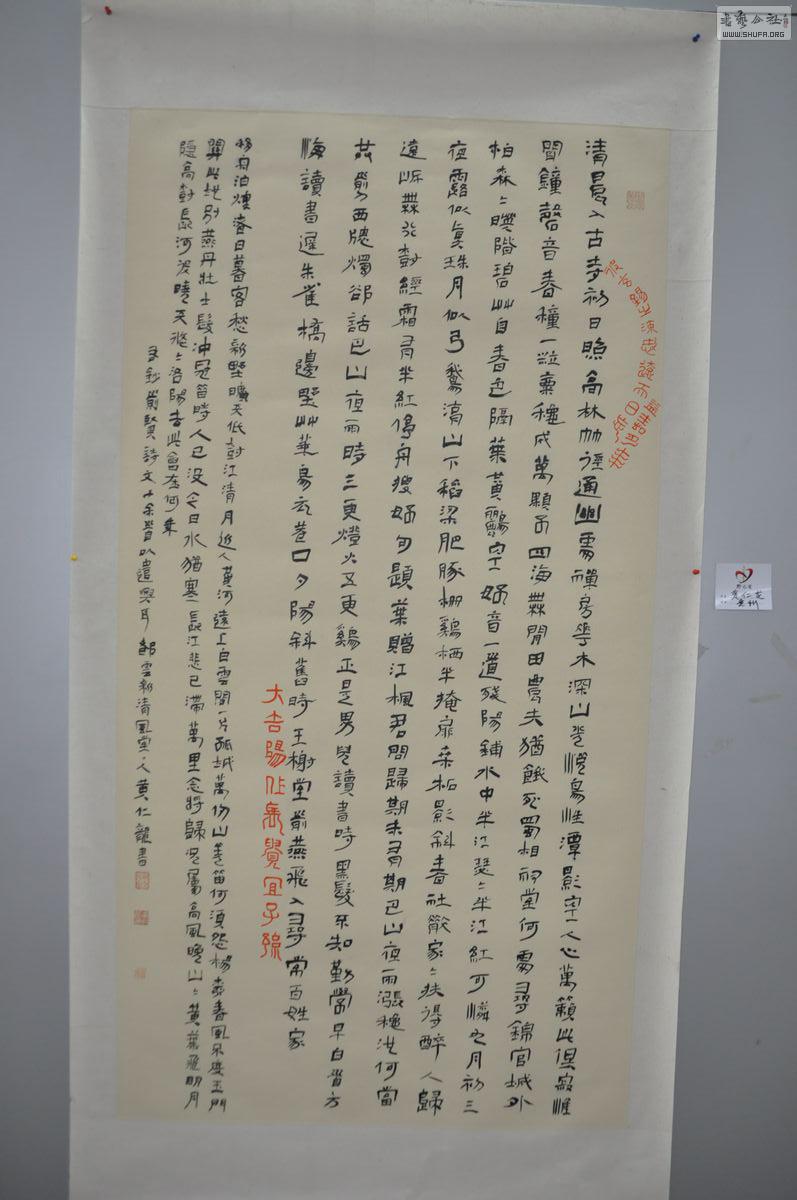 清晨入古寺初日照高林竹徑通幽處禪房花木深山光悅鳥性潭影空人心萬籟此俱寂惟
聞鐘磬音春種一粒粟穐成萬顆子四海無閒田農夫猶餓死蜀相祠堂何處尋錦官城外
柏森々映階碧艸自春色隔葉黃鸝空好音一道殘陽鋪水中半江瑟々半江紅可憐九月初三
夜露似真珠月似弓鵝湖山下稻粱肥豚柵鷄栖半掩扉桑柘影斜春社散家々扶得醉人歸
遠岸無樹經霜有半紅停舟搜好句題葉贈江楓君問歸期未有期巴山夜雨漲穐池何當
共剪西牕燭卻話巴山夜雨時三更燈火五更鷄正是男兒讀書時黑髮不知勤學早白首方
悔讀書遲朱雀橋邊野艸華烏衣巷口夕陽斜舊時王榭堂前燕飛入尋常百姓家
大吉陽作宜子孫
移舟泊煙渚日暮客愁新野曠天低樹江清月近人黃河遠上白雲間一片孤城萬仞山羌笛何須怨楊柳春風不度玉門
關此地別燕丹壯士髮沖冠昔時人已沒今日水猶寒長江悲已滯萬里念將歸況屬高風晚山々黃葉飛明月
隱高樹長河沒曉天悠々洛陽去此會在何年
又鈔前賢詩文十余首以遣興耳清風堂主人黃仁龍書
WWW.SHUFA.ORG